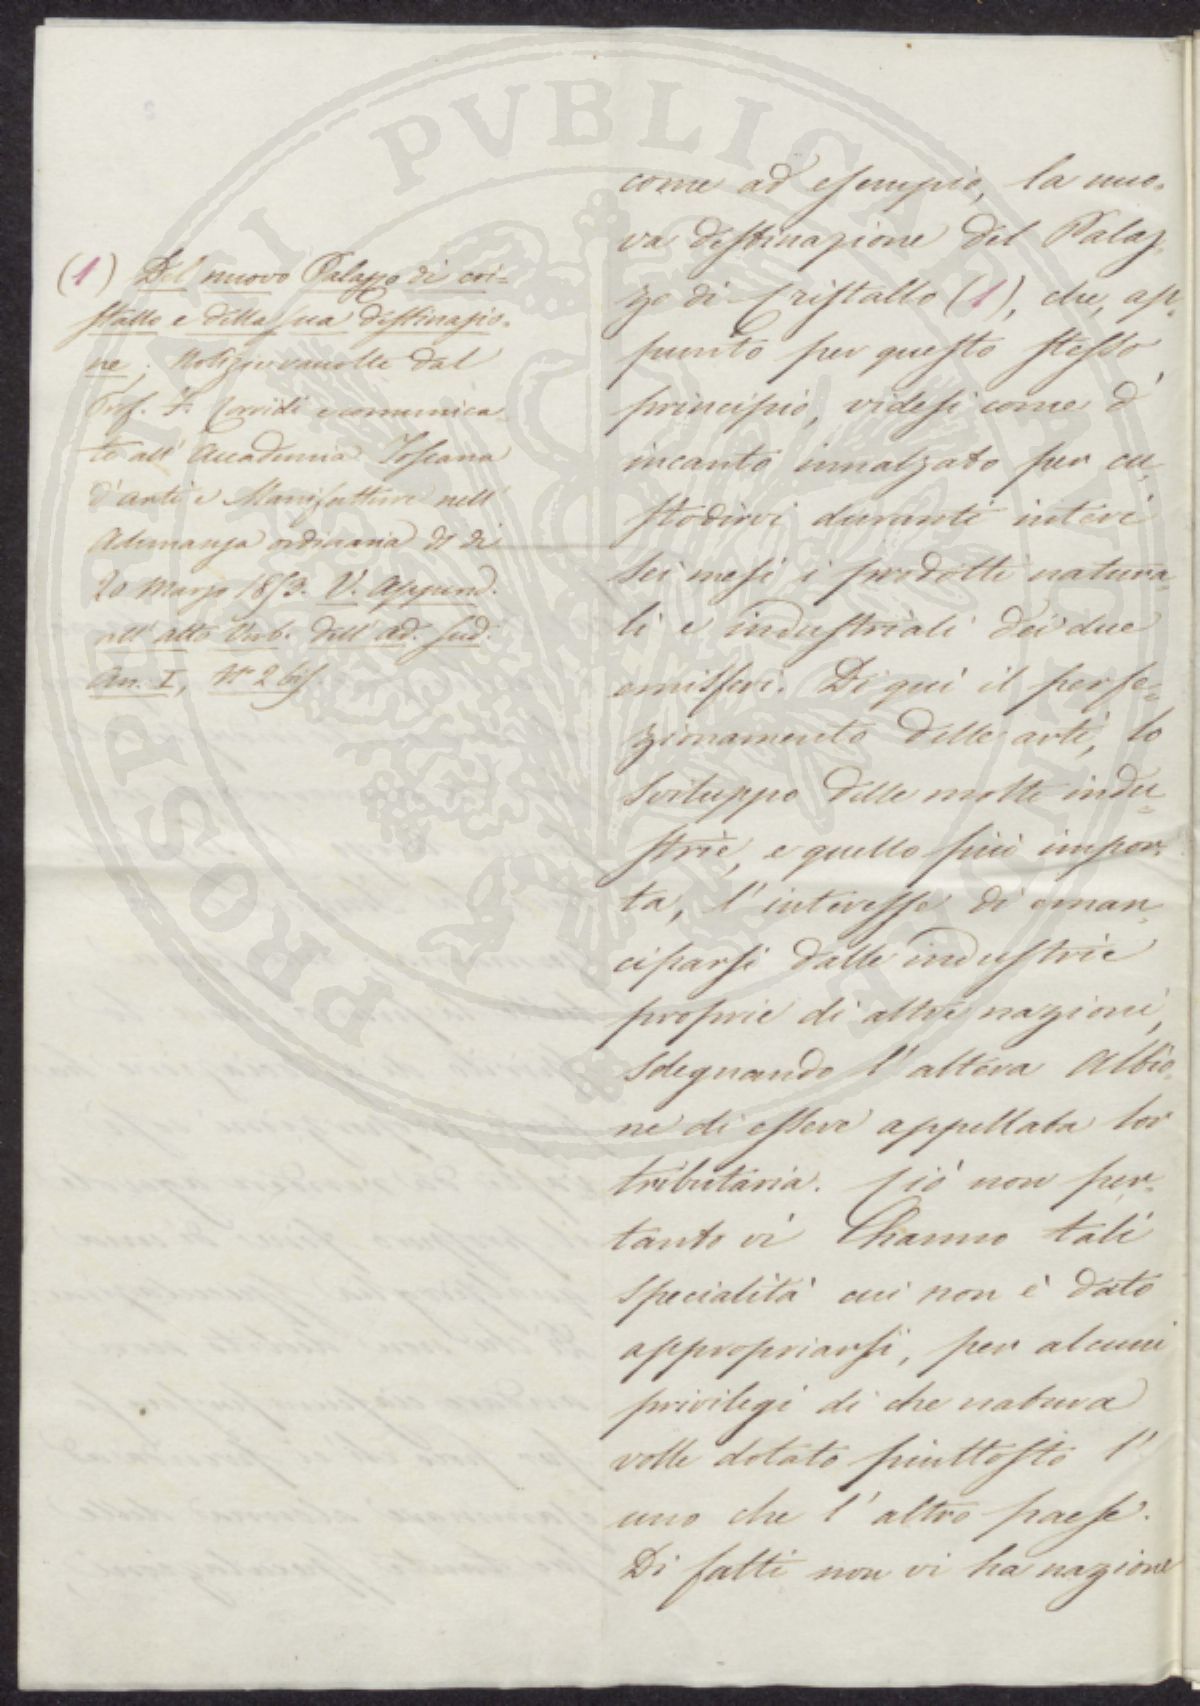 (1) Del nuovo Palazzo di cri-
stallo e della sua destinazio-
ne. Notizie raccolte dal
Prof. F. Corridi e comunica-
te all' Accademia Toscana
d'arti e Manifatture nell'
Adunanza ordinaria di
20 Marzo 1853. V. Append.
all' atto Verb. dell' ad. sud.
An. I, N° 2 bis.
come ad esempio, la nuo-
va destinazione del Palaz-
zo di Cristallo (1), che, ap-
punto per questo stesso
principio, videsi come d'
incanto innalzato per cu-
stodirvi durante interi
sei mesi i prodotti natura-
li e industriali dei due
emisferi. Di qui il perfe-
zionamento delle arti, lo
sviluppo delle molte indu-
strie, e quello più impor-
ta, l' interesse di eman-
ciparsi dalle industrie
proprie di altre nazioni,
sdegnando l' altera Albio-
ne di essere appellata lor
tributaria. Ciò non per-
tanto vi hanno tali
specialità cui non è dato
appropriarsi, per alcuni
privilegi di che natura
volle dotato piuttosto l'
uno che l' altro paese.
Di fatti non vi ha nazione
PROSPERITATI PVBLICAE AVGENDAE